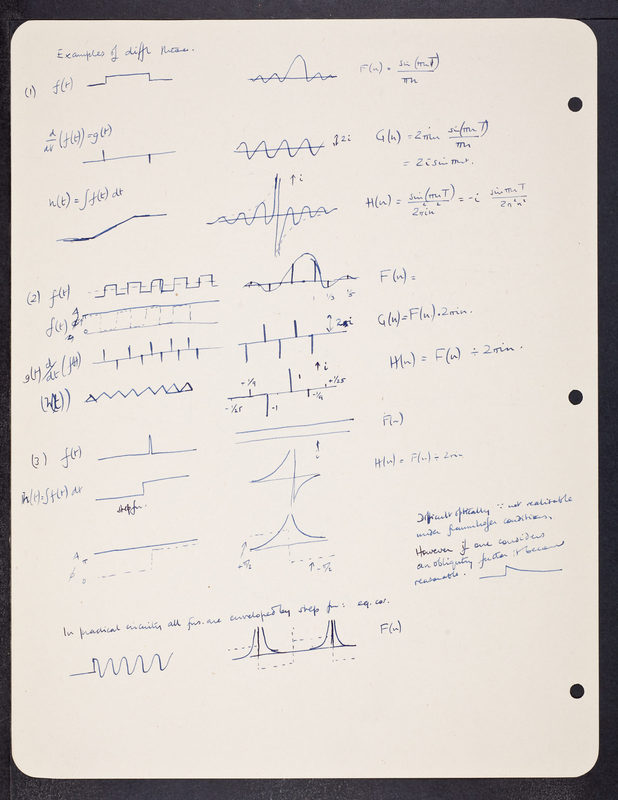 Examples of diffl
(1) f(t) F(n) = sin(πnT) / πn
d/dt (f(t)) = g(t) ↕2i G(n) = 2πin sin(πnT) / πn
= 2i sin πnT.
h(t) = ∫f(t) dt ↑i H(n) = sin(πnT) / 2π²in² = -i sin πnT / 2π²n²
(2) f(t) 1 1/3 1/5 F(n) =
f(t) A φ π 0 G(n) = F(n).2πin.
g(t) d/dt (f(t)) ↕2i
H(n) = F(n) ÷ 2πin.
(h(t)) -1/25 +1/9 -1 1 ↑i -1/9 +1/25
(3) f(t) F(n)
h(t)=∫f(t) dt ↑i H(n) = F(n) ÷ 2πin
step fn.
A φ π 0 +π/2 -π/2
Difficult optically ∵ not realisable
under fraunhofer conditions.
However if one considers
an obliquity factor it becomes
reasonable.
In practical circuitry all fns. are enveloped by step fn: eg. cos.
F(n)